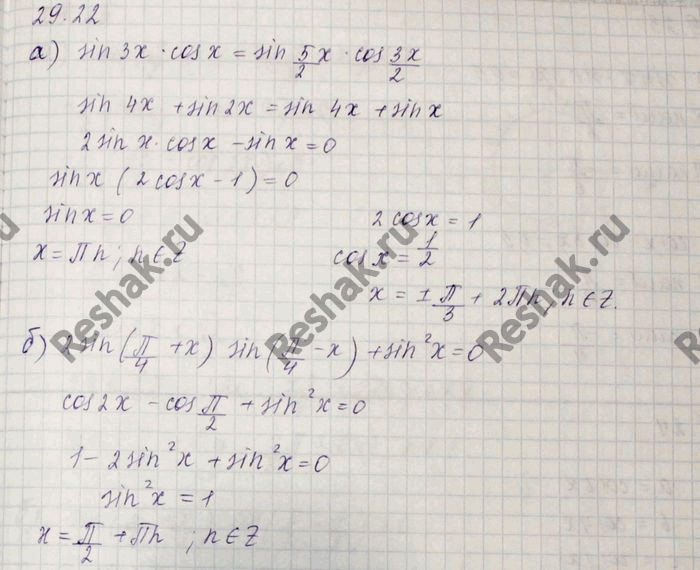 29.22
а) sin 3x · cos x = sin 5/2 x · cos 3x/2
sin 4x + sin 2x = sin 4x + sin x
2 sin x · cos x - sin x = 0
sin x (2 cos x - 1) = 0
sin x = 0
2 cos x = 1
x = πn; n ∈ Z
cos x = 1/2
x = ± π/3 + 2πn, n ∈ Z.
б) 2 sin(π/4 + x) sin(π/4 - x) + sin²x = 0
cos 2x - cos π/2 + sin²x = 0
1 - 2 sin²x + sin²x = 0
sin²x = 1
x = π/2 + πn ; n ∈ Z
Reshak.ru
Reshak.ru
Reshak.ru
Reshak.ru